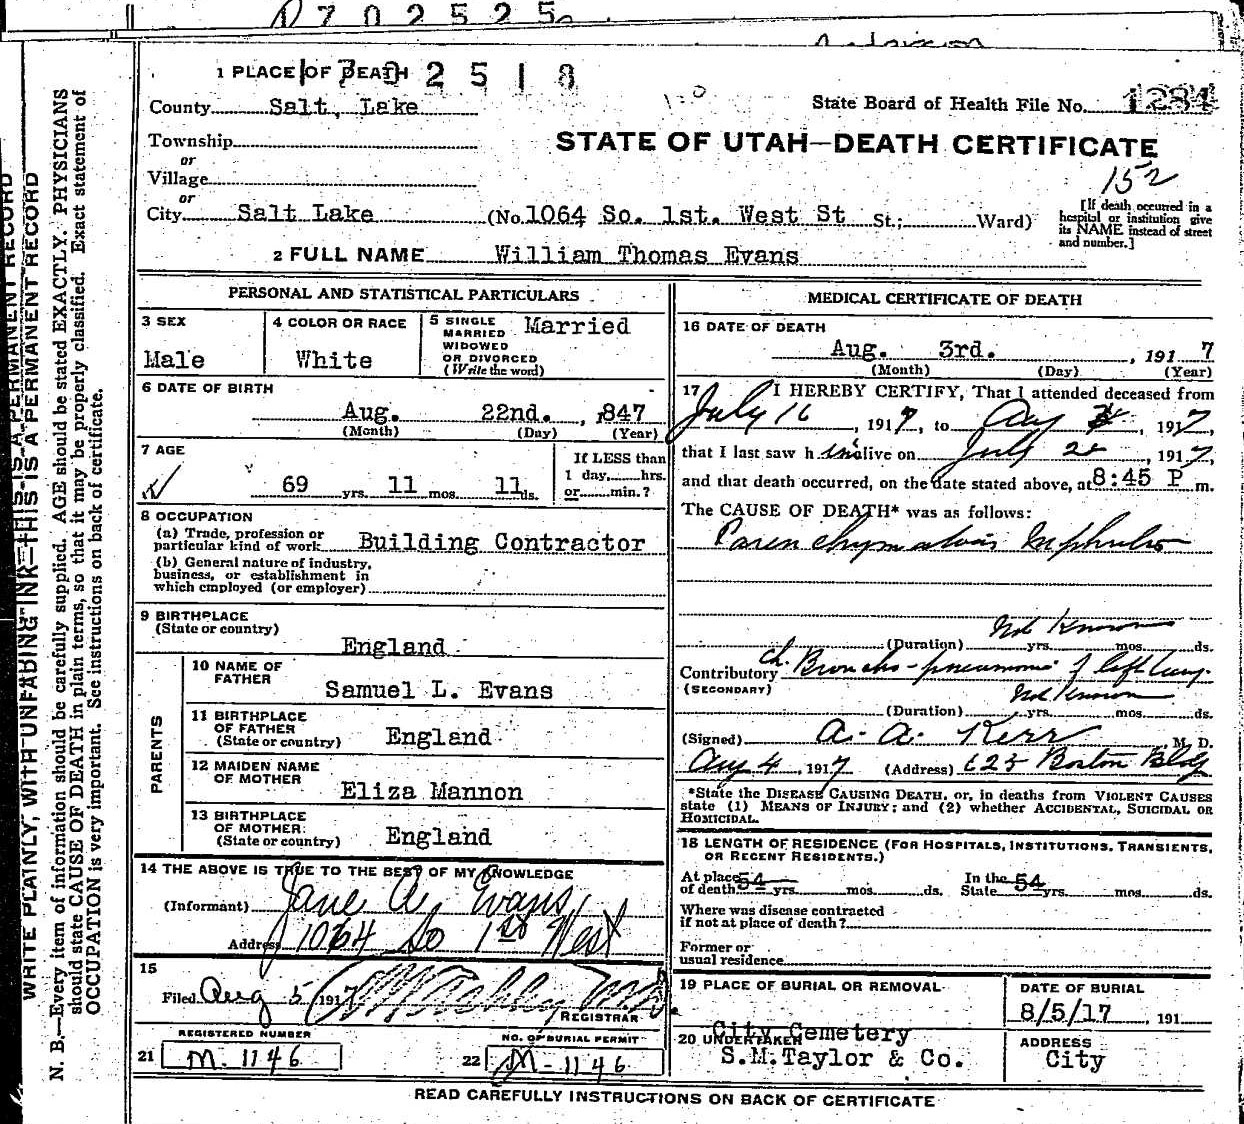 1702525
1 PLACE OF DEATH 2518
County Salt Lake
State Board of Health File No. 1284
Township
or
Village
or
STATE OF UTAH—DEATH CERTIFICATE
152
City Salt Lake (No. 1064 So. 1st. West St St.; Ward)
[If death occurred in a
hospital or institution give
its NAME instead of street
and number.]
2 FULL NAME William Thomas Evans
PERSONAL AND STATISTICAL PARTICULARS
3 SEX
Male
4 COLOR OR RACE
White
5 SINGLE
MARRIED
WIDOWED
OR DIVORCED
(Write the word)
Married
6 DATE OF BIRTH
Aug. 22nd. , 1847
(Month) (Day) (Year)
7 AGE
69 yrs. 11 mos. 11 ds.
If LESS than
1 day, hrs.
or min.?
8 OCCUPATION
(a) Trade, profession or
particular kind of work Building Contractor
(b) General nature of industry,
business, or establishment in
which employed (or employer)
9 BIRTHPLACE
(State or country)
England
PARENTS
10 NAME OF
FATHER
Samuel L. Evans
11 BIRTHPLACE
OF FATHER
(State or country) England
12 MAIDEN NAME
OF MOTHER
Eliza Mannon
13 BIRTHPLACE
OF MOTHER:
(State or country) England
14 THE ABOVE IS TRUE TO THE BEST OF MY KNOWLEDGE
(Informant) Jane A. Evans
Address 1064 So 1st West
15
Filed Aug 5 1917
REGISTRAR
REGISTERED NUMBER
21 M. 1146
NO. OF BURIAL PERMIT
22 M-1146
MEDICAL CERTIFICATE OF DEATH
16 DATE OF DEATH
Aug. 3rd. , 191 7
(Month) (Day) (Year)
17 I HEREBY CERTIFY, That I attended deceased from
July 16 , 1917, to Aug 3 , 1917,
that I last saw h im alive on July 28 , 1917,
and that death occurred, on the date stated above, at 8:45 P m.
The CAUSE OF DEATH* was as follows:
Parenchymatous Nephritis
(Duration) Not Known yrs. mos. ds.
Contributory Ch. Broncho-pneumonia of left lung.
(SECONDARY)
(Duration) Not Known yrs. mos. ds.
(Signed) A. A. Kerr M. D.
Aug 4 , 1917 (Address) 625 Boston Bldg
*State the DISEASE CAUSING DEATH, or, in deaths from VIOLENT CAUSES
state (1) MEANS OF INJURY; and (2) whether ACCIDENTAL, SUICIDAL OR
HOMICIDAL.
18 LENGTH OF RESIDENCE (FOR HOSPITALS, INSTITUTIONS, TRANSIENTS,
OR RECENT RESIDENTS.)
At place of death 54 yrs. mos. ds. In the State 54 yrs. mos. ds.
Where was disease contracted
if not at place of death?
Former or
usual residence
19 PLACE OF BURIAL OR REMOVAL
City Cemetery
DATE OF BURIAL
8/5/17 , 191
20 UNDERTAKER
S.M.Taylor & Co.
ADDRESS
City
READ CAREFULLY INSTRUCTIONS ON BACK OF CERTIFICATE
WRITE PLAINLY, WITH UNFADING INK—THIS IS A PERMANENT RECORD
N. B.—Every item of information should be carefully supplied. AGE should be stated EXACTLY. PHYSICIANS
should state CAUSE OF DEATH in plain terms, so that it may be properly classified. Exact statement of
OCCUPATION is very important. See instructions on back of certificate.